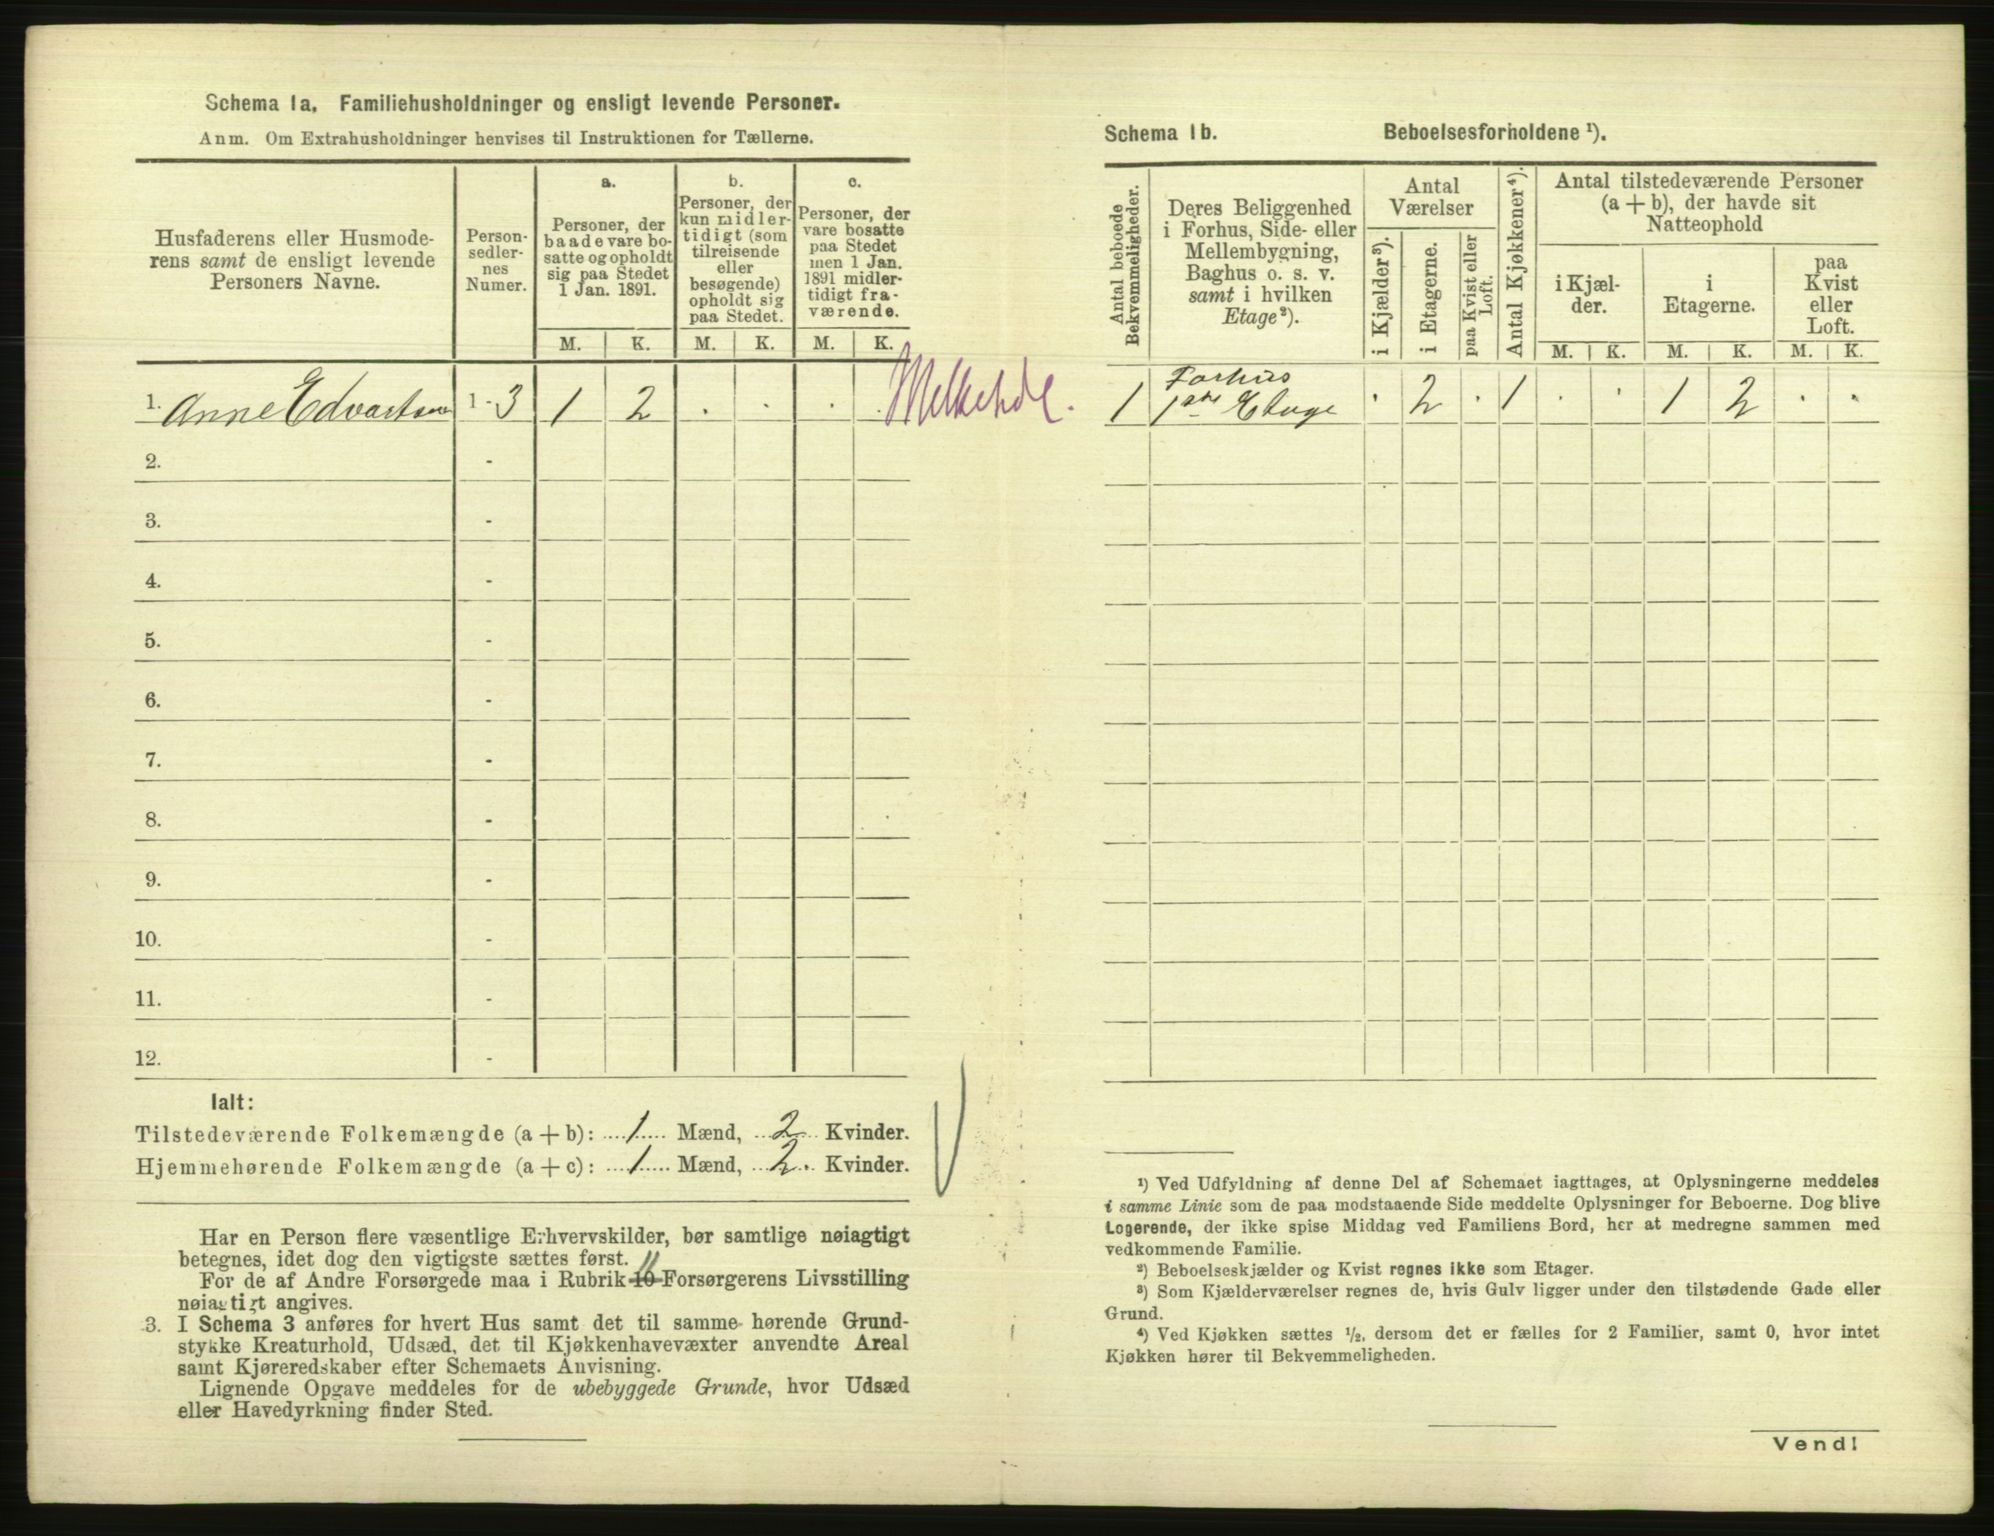 Schema 1a. Familiehusholdninger og ensligt levende Personer.
Anm. Om Extrahusholdninger henvises til Instruktionen for Tællerne.
Husfaderens eller Husmode-
rens samt de ensligt levende
Personers Navne.
Person-
sedler-
nes
Numer.
a.
Personer, der
baade vare bo-
satte og opholdt
sig paa Stedet
1 Jan. 1891.
b.
Personer, der
kun midler-
tidigt (som
tilreisende
eller
besøgende)
opholdt sig
paa Stedet.
c.
Personer, der
vare bosatte
paa Stedet
men 1 Jan.
1891 midler-
tidigt fra-
værende.
M. K. M. K. M. K.
1. Anne Edvartsen 1 - 3 1 2 . . . .
2. -
3. -
4. -
5. -
6. -
7. -
8. -
9. -
10. -
11. -
12. -
Ialt:
Tilstedeværende Folkemængde (a + b): 1 Mænd, 2 Kvinder.
Hjemmehørende Folkemængde (a + c): 1 Mænd, 2 Kvinder.
Har en Person flere væsentlige Erhvervskilder, bør samtlige nøiagtigt
betegnes, idet dog den vigtigste sættes først.
11
For de af Andre Forsørgede maa i Rubrik 10 Forsørgerens Livsstilling
nøiagtigt angives.
3. I Schema 3 anføres for hvert Hus samt det til samme hørende Grund-
stykke Kreaturhold, Udsæd, det til Kjøkkenhavevæxter anvendte Areal
samt Kjøreredskaber efter Schemaets Anvisning.
Lignende Opgave meddeles for de ubebyggede Grunde, hvor Udsæd
eller Havedyrkning finder Sted.
Schema 1b. Beboelsesforholdene ¹).
Antal beboede
Bekvemmeligheder.
Deres Beliggenhed
i Forhus, Side- eller
Mellembygning,
Baghus o. s. v.
samt i hvilken
Etage²).
Antal
Værelser
i Kjælder³).
i Etagerne.
paa Kvist eller
Loft.
Antal Kjøkkener⁴).
Antal tilstedeværende Personer
(a + b), der havde sit
Natteophold
i Kjæl-
der.
i
Etagerne.
paa
Kvist
eller
Loft.
M. K. M. K. M. K.
1 Forhus
1ste Etage · 2 · 1 · · 1 2 · ·
¹) Ved Udfyldning af denne Del af Schemaet iagttages, at Oplysningerne meddeles
i samme Linie som de paa modstaaende Side meddelte Oplysninger for Beboerne. Dog blive
Logerende, der ikke spise Middag ved Familiens Bord, her at medregne sammen med
vedkommende Familie.
²) Beboelseskjælder og Kvist regnes ikke som Etager.
³) Som Kjælderværelser regnes de, hvis Gulv ligger under den tilstødende Gade eller
Grund.
⁴) Ved Kjøkken sættes ½, dersom det er fælles for 2 Familier, samt 0, hvor intet
Kjøkken hører til Bekvemmeligheden.
Vend!